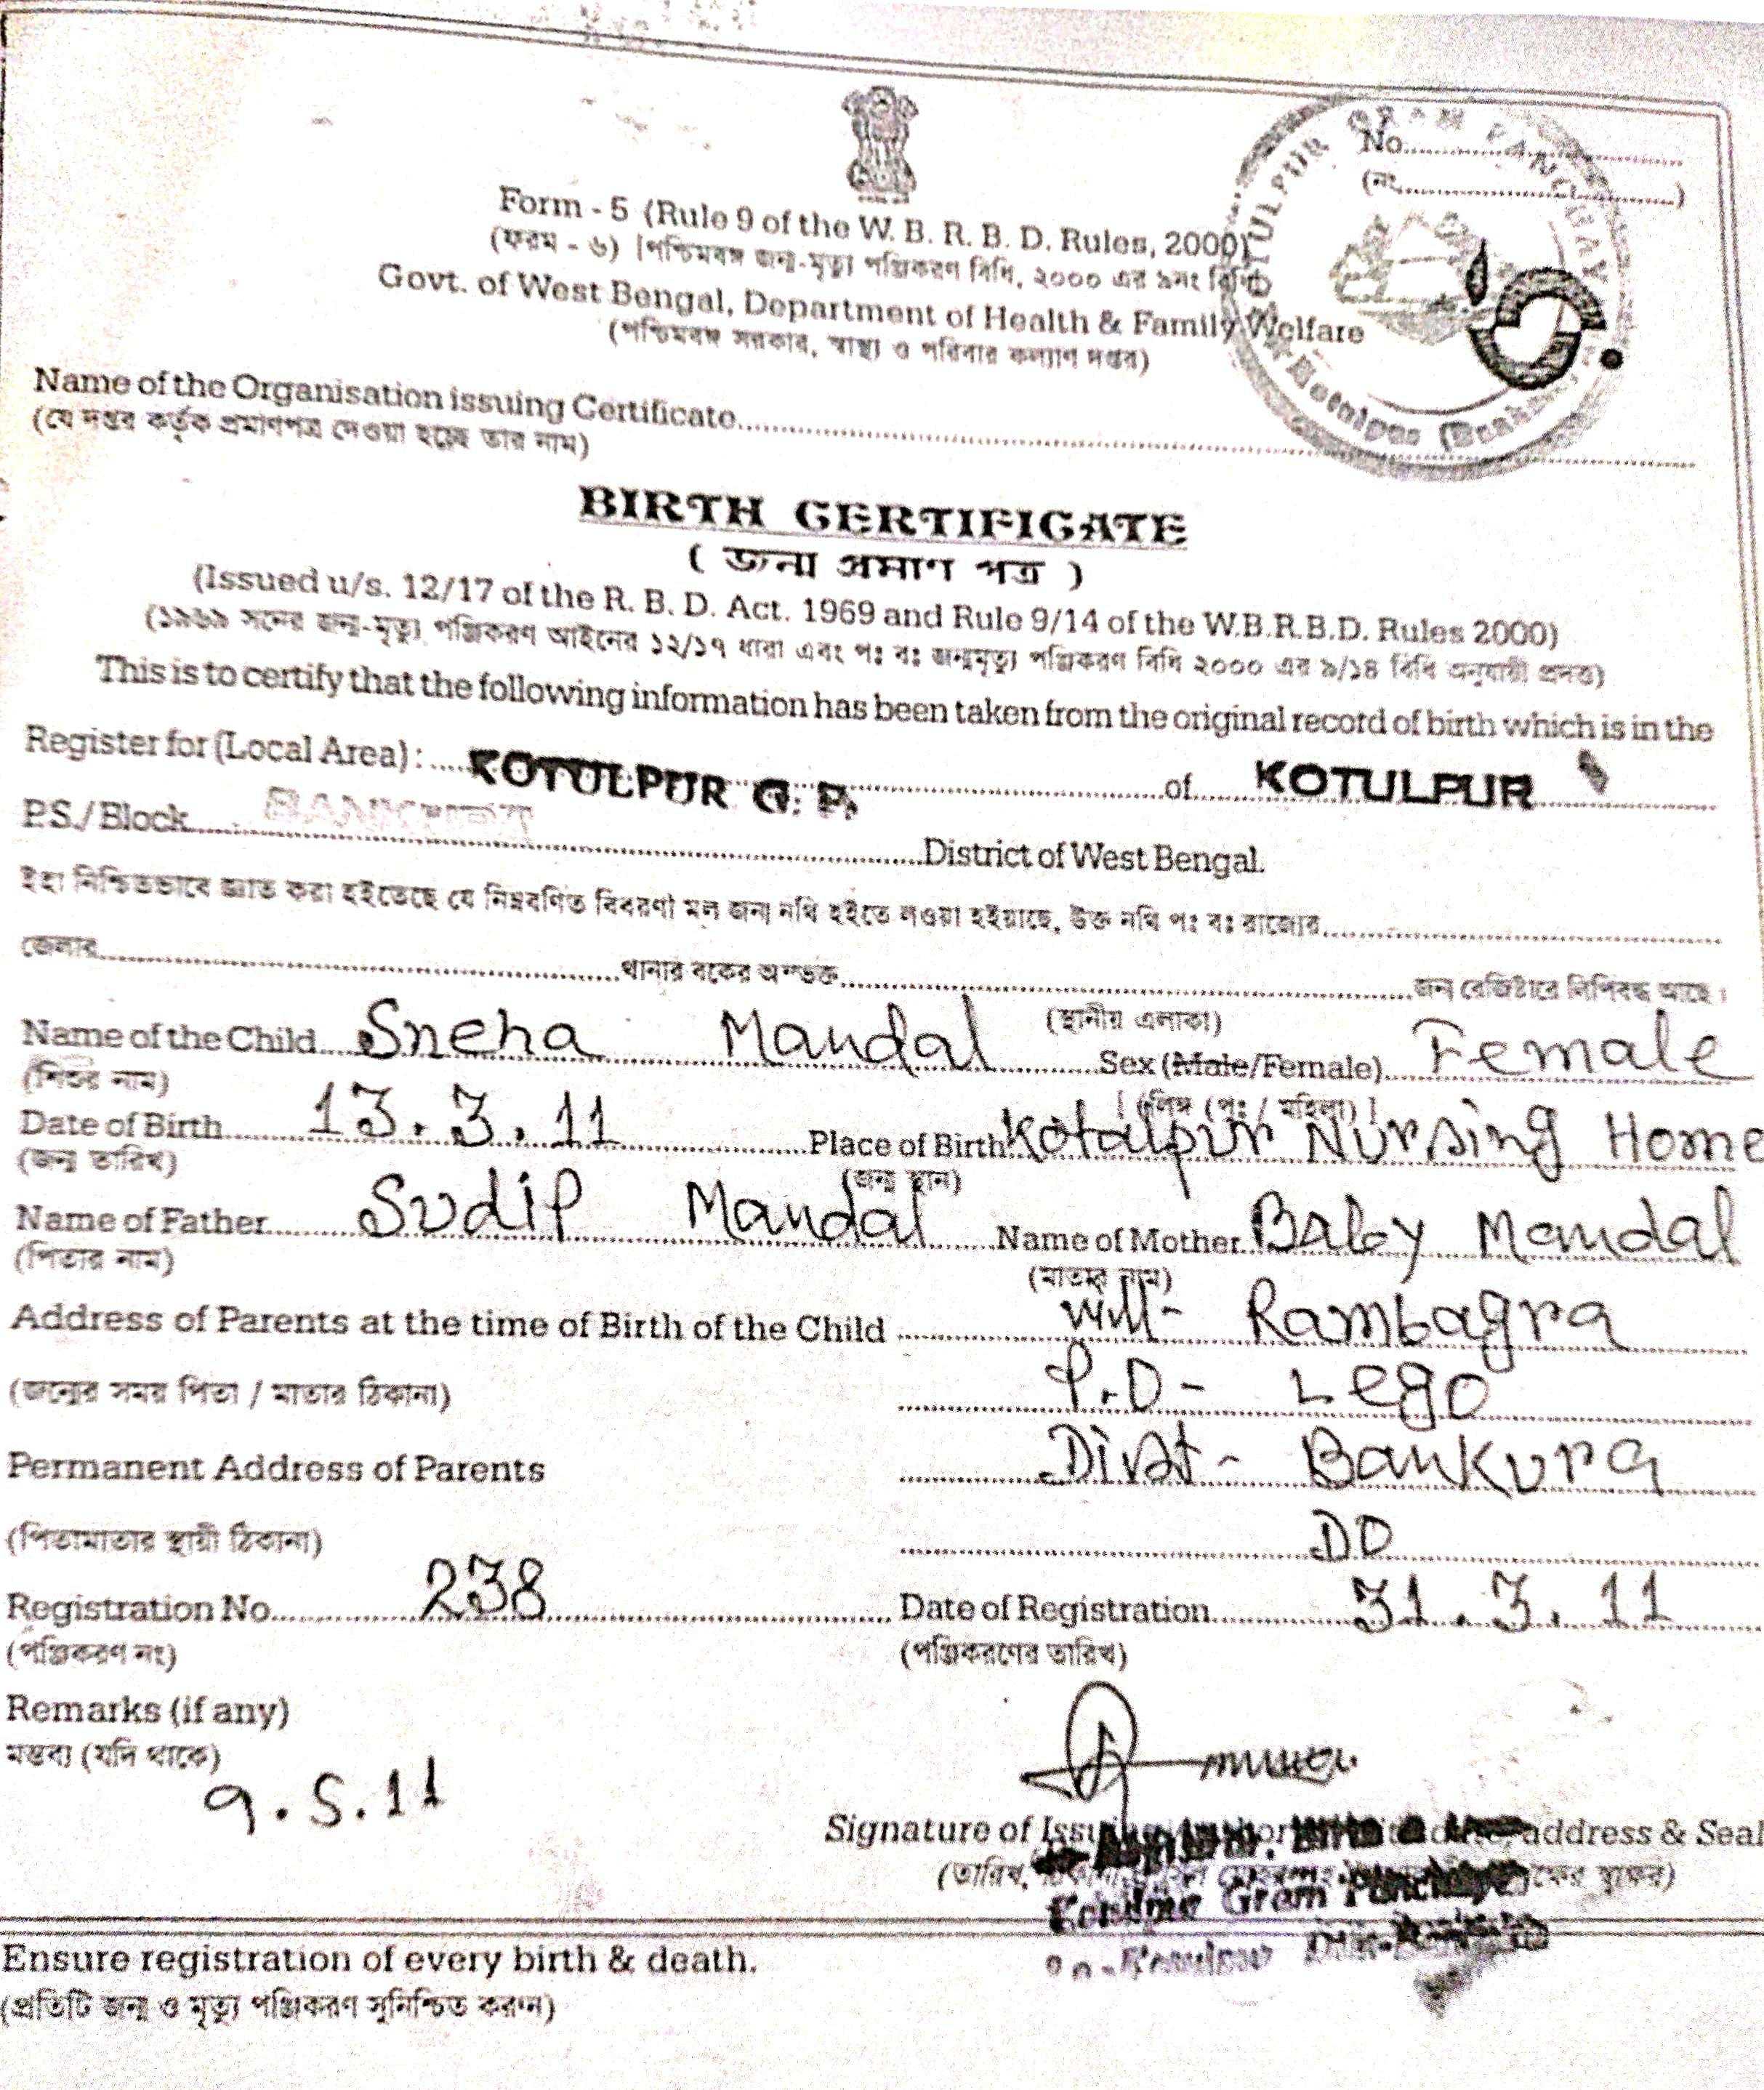 KOTULPUR GRAM PANCHAYAT
No.
(নং)
Form - 5 (Rule 9 of the W. B. R. B. D. Rules, 2000)
(ফরম - ৬) [পশ্চিমবঙ্গ জন্ম-মৃত্যু পঞ্জিকরণ বিধি, ২০০০ এর ৯নং বিধি]
Govt. of West Bengal, Department of Health & Family Welfare
(পশ্চিমবঙ্গ সরকার, স্বাস্থ্য ও পরিবার কল্যাণ দপ্তর)
Name of the Organisation issuing Certificate
(যে দপ্তর কর্তৃক প্রমাণপত্র দেওয়া হচ্ছে তার নাম)
BIRTH CERTIFICATE
( জন্ম প্রমাণ পত্র )
(Issued u/s. 12/17 of the R. B. D. Act. 1969 and Rule 9/14 of the W.B.R.B.D. Rules 2000)
(১৯৬৯ সনের জন্ম-মৃত্যু পঞ্জিকরণ আইনের ১২/১৭ ধারা এবং পঃ বঃ জন্মমৃত্যু পঞ্জিকরণ বিধি ২০০০ এর ৯/১৪ বিধি অনুযায়ী প্রদত্ত)
This is to certify that the following information has been taken from the original record of birth which is in the
Register for (Local Area) : KOTULPUR G. P. of KOTULPUR
P.S./ Block District of West Bengal.
ইহা নিশ্চিতভাবে জ্ঞাত করা হইতেছে যে নিম্নবর্ণিত বিবরণী মূল জন্ম নথি হইতে লওয়া হইয়াছে, উক্ত নথি পঃ বঃ রাজ্যের
জেলার থানার ব্লকের অন্তর্ভুক্ত জন্ম রেজিষ্টারে লিপিবদ্ধ আছে।
(স্থানীয় এলাকা)
Name of the Child Sneha Mandal Sex (Male/Female) Female
(শিশুর নাম) [ লিঙ্গ (পুং / মহিলা) ]
Date of Birth 13.3.11 Place of Birth Kotalpur Nursing Home
(জন্ম তারিখ) (জন্ম স্থান)
Name of Father Sudip Mandal Name of Mother Baby Mandal
(পিতার নাম) (মাতার নাম)
Address of Parents at the time of Birth of the Child Vill- Rambagra
(জন্মের সময় পিতা / মাতার ঠিকানা) P.O- Lego
Permanent Address of Parents Dist- Bankura
(পিতামাতার স্থায়ী ঠিকানা) DO
Registration No 238 Date of Registration 31.3.11
(পঞ্জিকরণ নং) (পঞ্জিকরণের তারিখ)
Remarks (if any)
মন্তব্য (যদি থাকে)
9.5.11
Signature of Issuing address & Seal
(তারিখ,
Gram Panchayat
Ensure registration of every birth & death.
(প্রতিটি জন্ম ও মৃত্যু পঞ্জিকরণ সুনিশ্চিত করুন)